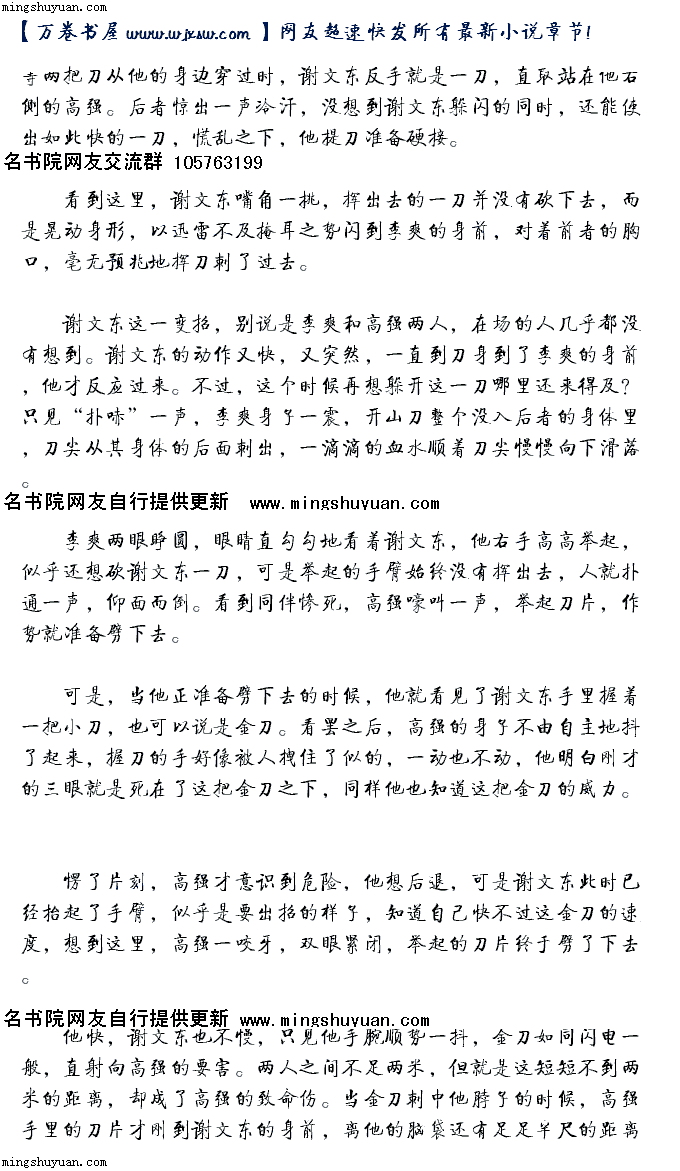 mingshuyuan.com
【万卷书屋 www.wjxsw.com 】网友超速快发所有最新小说章节!
寺两把刀从他的身边穿过时，谢文东反手就是一刀，直取站在他右
侧的高强。后者惊出一声冷汗，没想到谢文东躲闪的同时，还能使
出如此快的一刀，慌乱之下，他提刀准备硬接。
名书院网友交流群 105763199
看到这里，谢文东嘴角一挑，挥出去的一刀并没有砍下去，而
是晃动身形，以迅雷不及掩耳之势闪到李爽的身前，对着前者的胸
口，毫无预兆地挥刀刺了过去。
谢文东这一变招，别说是李爽和高强两人，在场的人几乎都没
有想到。谢文东的动作又快，又突然，一直到刀身到了李爽的身前
，他才反应过来。不过，这个时候再想躲开这一刀哪里还来得及？
只见“扑哧”一声，李爽身子一震，开山刀整个没入后者的身体里
，刀尖从其身体的后面刺出，一滴滴的血水顺着刀尖慢慢向下滑落
。
名书院网友自行提供更新 www.mingshuyuan.com
李爽两眼睁圆，眼睛直勾勾地看着谢文东，他右手高高举起，
似乎还想砍谢文东一刀，可是举起的手臂始终没有挥出去，人就扑
通一声，仰面而倒。看到同伴惨死，高强嚎叫一声，举起刀片，作
势就准备劈下去。
可是，当他正准备劈下去的时候，他就看见了谢文东手里握着
一把小刀，也可以说是金刀。看罢之后，高强的身子不由自主地抖
了起来，握刀的手好像被人拽住了似的，一动也不动，他明白刚才
的三眼就是死在了这把金刀之下，同样他也知道这把金刀的威力。
愣了片刻，高强才意识到危险，他想后退，可是谢文东此时已
经抬起了手臂，似乎是要出招的样子，知道自己快不过这金刀的速
度，想到这里，高强一咬牙，双眼紧闭，举起的刀片终于劈了下去
。
名书院网友自行提供更新 www.mingshuyuan.com
他快，谢文东也不慢，只见他手腕顺势一抖，金刀如同闪电一
般，直射向高强的要害。两人之间不足两米，但就是这短短不到两
米的距离，却成了高强的致命伤。当金刀刺中他脖子的时候，高强
手里的刀片才刚到谢文东的身前，离他的脑袋还有足足半尺的距离
mingshuyuan.com